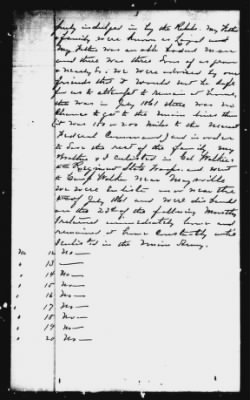 freely indulged in by the Rebels. My Father
& family were known as Loyal and
My Father was an old Bodied Man
and there was three Sons of us grown
& nearly so. We were advised by our
friends that it would not be safe
for us to attempt to remain at home,
this was in July 1861 there was no
chance to get to the Union lines then
(it was 150 or 200 miles to the nearest
Federal Command) and in order
to save the rest of the family, my
Brother & I enlisted in Col Walkers
4th Regiment State Troops and went
to Camp Walker near Maysville
we were enlisted on or near the
of July 1861 and were disbanded
on the 20th of the following Month,
I returned immediately home and
remained at home Constantly until
I enlisted in the Union Army.
No 12 No—
" 13 —
" 14 No—
" 15 No—
" 16 No—
" 17 No—
" 18 No—
" 19 No—
" 20 No—